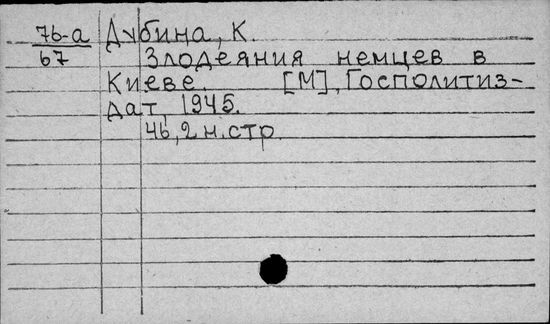 76-а Дубина, К.
67 Злодеяния немцев в
Киеве. [М], Госполитиз-
дат, 1945.
46, 2 н. стр.